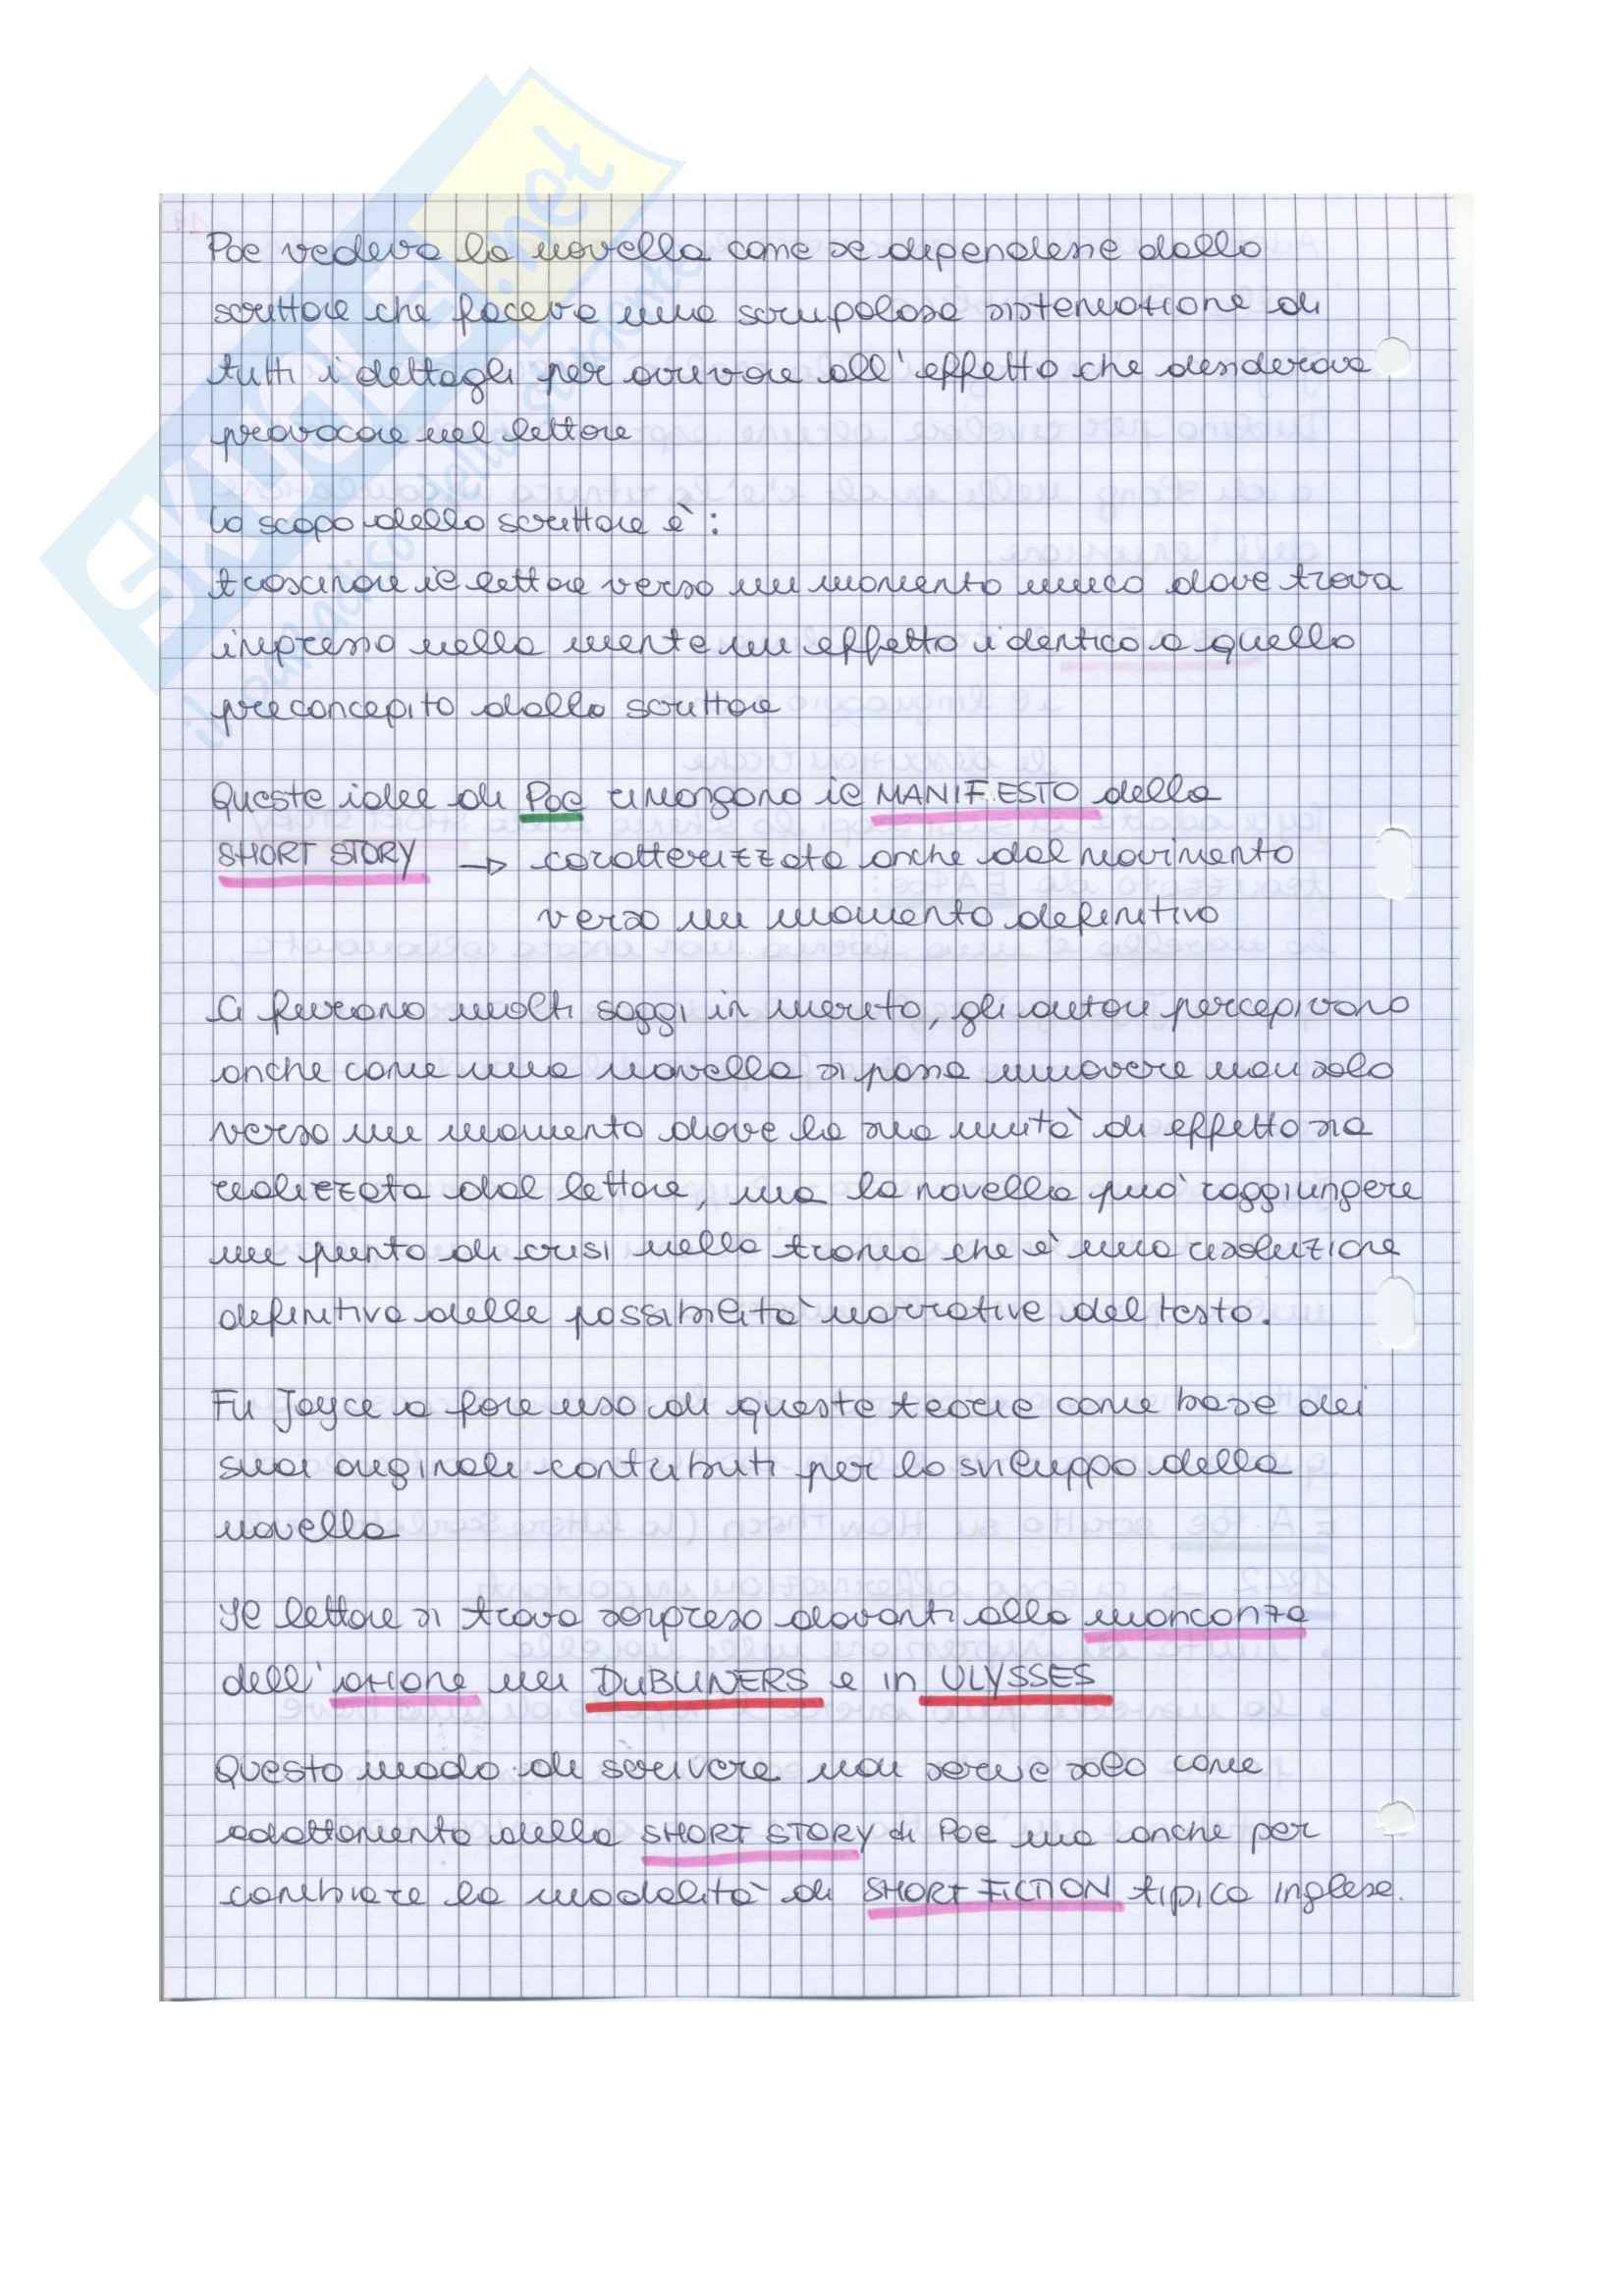 SKUOLA.net
Poe vedeva la novella come se dipendesse dallo
scrittore che faceva una scrupolosa sistemazione di
tutti i dettagli per arrivare all'effetto che desiderava
provocare nel lettore
Lo scopo dello scrittore è:
trascinare il lettore verso un momento unico dove trova
impresso nella mente un effetto identico a quello
preconcepito dallo scrittore
Queste idee di Poe rimangono il MANIFESTO della
SHORT STORY → caratterizzata anche dal movimento
verso un momento definitivo
Ci furono molti saggi in merito, gli autori percepivano
anche come una novella si possa muovere non solo
verso un momento dove la sua unità di effetto sia
realizzata dal lettore, ma la novella può raggiungere
un punto di crisi nella trama che è una risoluzione
definitiva delle possibilità narrative del testo.
Fu Joyce a fare uso di queste teorie come base dei
suoi originali contributi per lo sviluppo della
novella
Il lettore si trova sorpreso davanti alla mancanza
dell'azione nei DUBLINERS e in ULYSSES
Questo modo di scrivere non serve solo come
adattamento della SHORT STORY di Poe ma anche per
cambiare la modalità di SHORT FICTION tipica inglese.